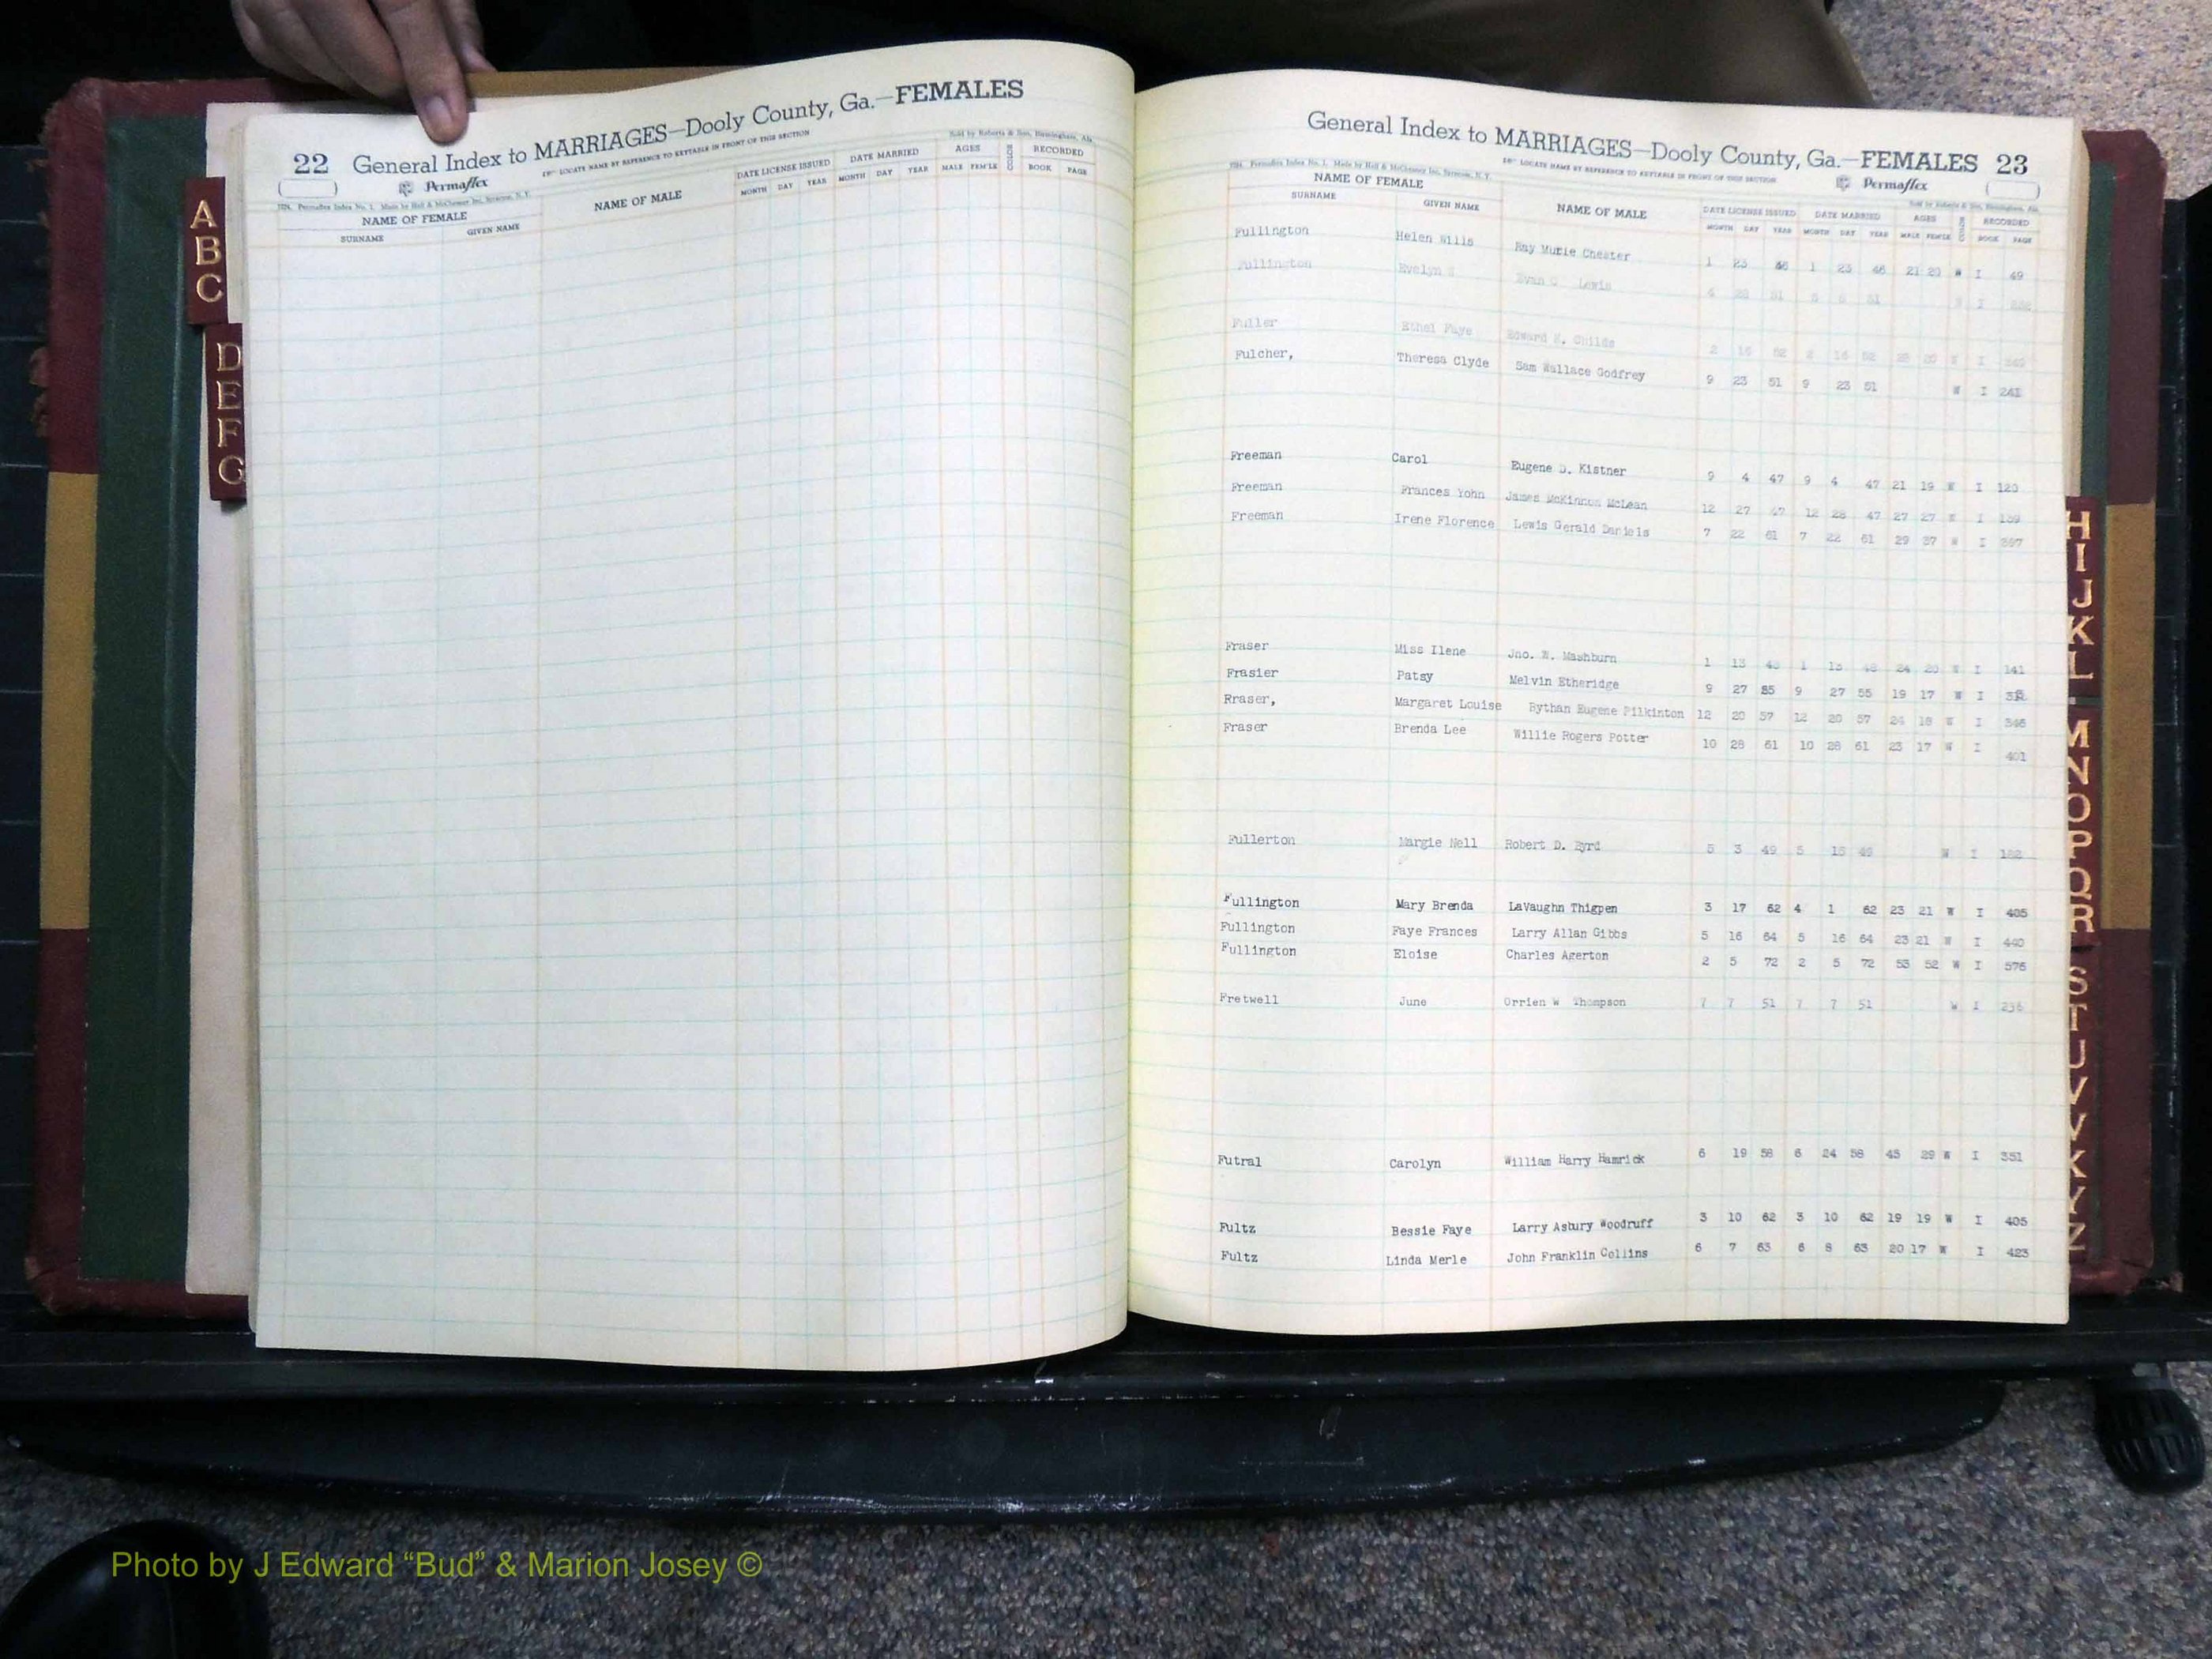 22 General Index to MARRIAGES—Dooly County, Ga.—FEMALES
Permaflex
LOCATE NAME BY REFERENCE TO KEYTABLE IN FRONT OF THIS SECTION
Sold by Roberts & Son, Birmingham, Ala.
Permaflex Index No. 1. Made by Hall & McChesney Inc. Syracuse, N.Y.
NAME OF FEMALE NAME OF MALE DATE LICENSE ISSUED DATE MARRIED AGES COLOR RECORDED
SURNAME GIVEN NAME MONTH DAY YEAR MONTH DAY YEAR MALE FEM'LE BOOK PAGE
A
B
C
D
E
F
G
General Index to MARRIAGES—Dooly County, Ga.—FEMALES 23
LOCATE NAME BY REFERENCE TO KEYTABLE IN FRONT OF THIS SECTION
Permaflex
Permaflex Index No. 1. Made by Hall & McChesney Inc. Syracuse, N.Y.
Sold by Roberts & Son, Birmingham, Ala.
NAME OF FEMALE NAME OF MALE DATE LICENSE ISSUED DATE MARRIED AGES COLOR RECORDED
SURNAME GIVEN NAME MONTH DAY YEAR MONTH DAY YEAR MALE FEM'LE BOOK PAGE
Fullington Helen Willis Ray Murie Chester 1 23 46 1 23 46 21 20 W I 49
Fullington Evelyn Evan Lewis 51 51 I
Fuller Ethel Faye Edward Childs 2 16 52 2 16 52 20 W I
Fulcher, Theresa Clyde Sam Wallace Godfrey 9 23 51 9 23 51 W I 241
Freeman Carol Eugene D. Kistner 9 4 47 9 4 47 21 19 W I 120
Freeman Frances Yohn James McKinnon McLean 12 27 47 12 28 47 27 27 W I 139
Freeman Irene Florence Lewis Gerald Daniels 7 22 61 7 22 61 29 37 W I 397
Fraser Miss Ilene Jno. W. Mashburn 1 13 48 1 13 48 24 W I 141
Frasier Patsy Melvin Etheridge 9 27 55 9 27 55 19 17 W I
Rraser, Margaret Louise Bythan Eugene Pilkinton 12 20 57 12 20 57 24 18 W I 346
Fraser Brenda Lee Willie Rogers Potter 10 28 61 10 28 61 23 17 W I 401
Fullerton Margie Nell Robert D. Byrd 5 3 49 5 15 49 W I 182
Fullington Mary Brenda LaVaughn Thigpen 3 17 62 4 1 62 23 21 W I 405
Fullington Faye Frances Larry Allan Gibbs 5 16 64 5 16 64 23 21 W I 440
Fullington Eloise Charles Agerton 2 5 72 2 5 72 53 52 W I 576
Fretwell June Orrien W Thompson 7 7 51 7 7 51 W I 236
Futral Carolyn William Harry Hamrick 6 19 58 6 24 58 45 29 W I 351
Fultz Bessie Faye Larry Asbury Woodruff 3 10 62 3 10 62 19 19 W I 405
Fultz Linda Merle John Franklin Collins 6 7 63 6 8 63 20 17 W I 423
H
I
J
K
L
M
N
O
P
Q
R
S
T
U
V
W
X
Y
Z
Photo by J Edward “Bud” & Marion Josey ©